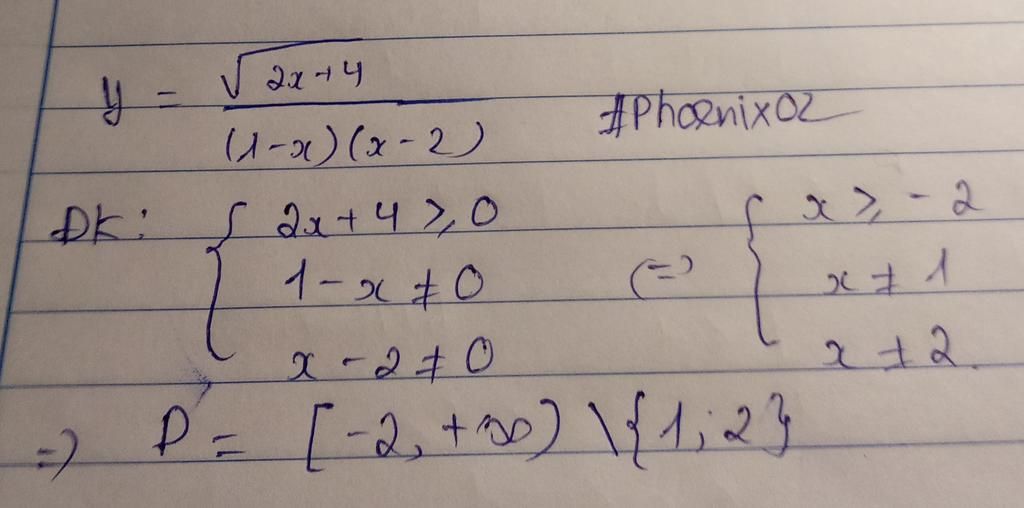 y = √(2x+4) / (1-x)(x-2) #Phoenix02
ĐK: { 2x+4 ≥ 0 (=) { x ≥ -2
1-x ≠ 0 x ≠ 1
x-2 ≠ 0 x ≠ 2.
=) D = [-2, +∞) \ {1; 2}